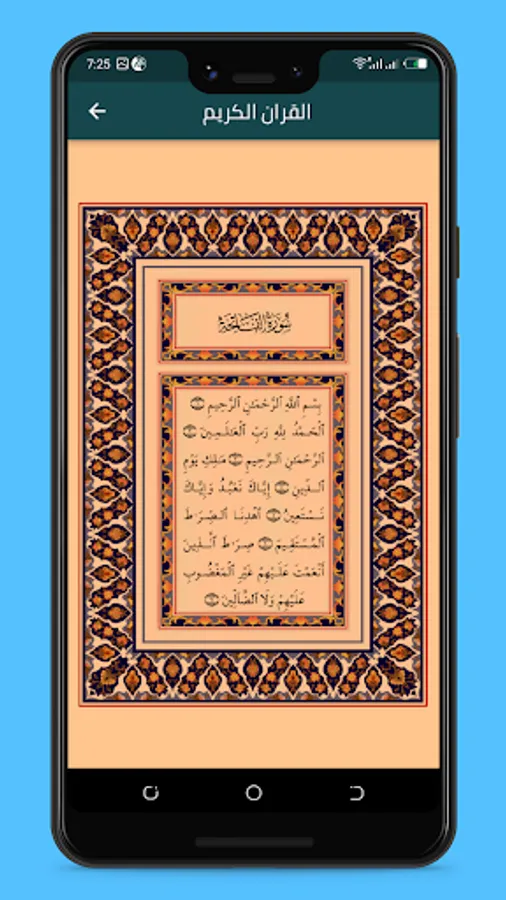 7:25
القران الكريم
سُورَةُ الفَاتِحَةِ
بِسْمِ ٱللَّهِ ٱلرَّحْمَٰنِ ٱلرَّحِيمِ
ٱلْحَمْدُ لِلَّهِ رَبِّ ٱلْعَٰلَمِينَ
ٱلرَّحْمَٰنِ ٱلرَّحِيمِ مَٰلِكِ يَوْمِ
ٱلدِّينِ إِيَّاكَ نَعْبُدُ وَإِيَّاكَ
نَسْتَعِينُ ٱهْدِنَا ٱلصِّرَٰطَ
ٱلْمُسْتَقِيمَ صِرَٰطَ ٱلَّذِينَ
أَنْعَمْتَ عَلَيْهِمْ غَيْرِ ٱلْمَغْضُوبِ
عَلَيْهِمْ وَلَا ٱلضَّآلِّينَ